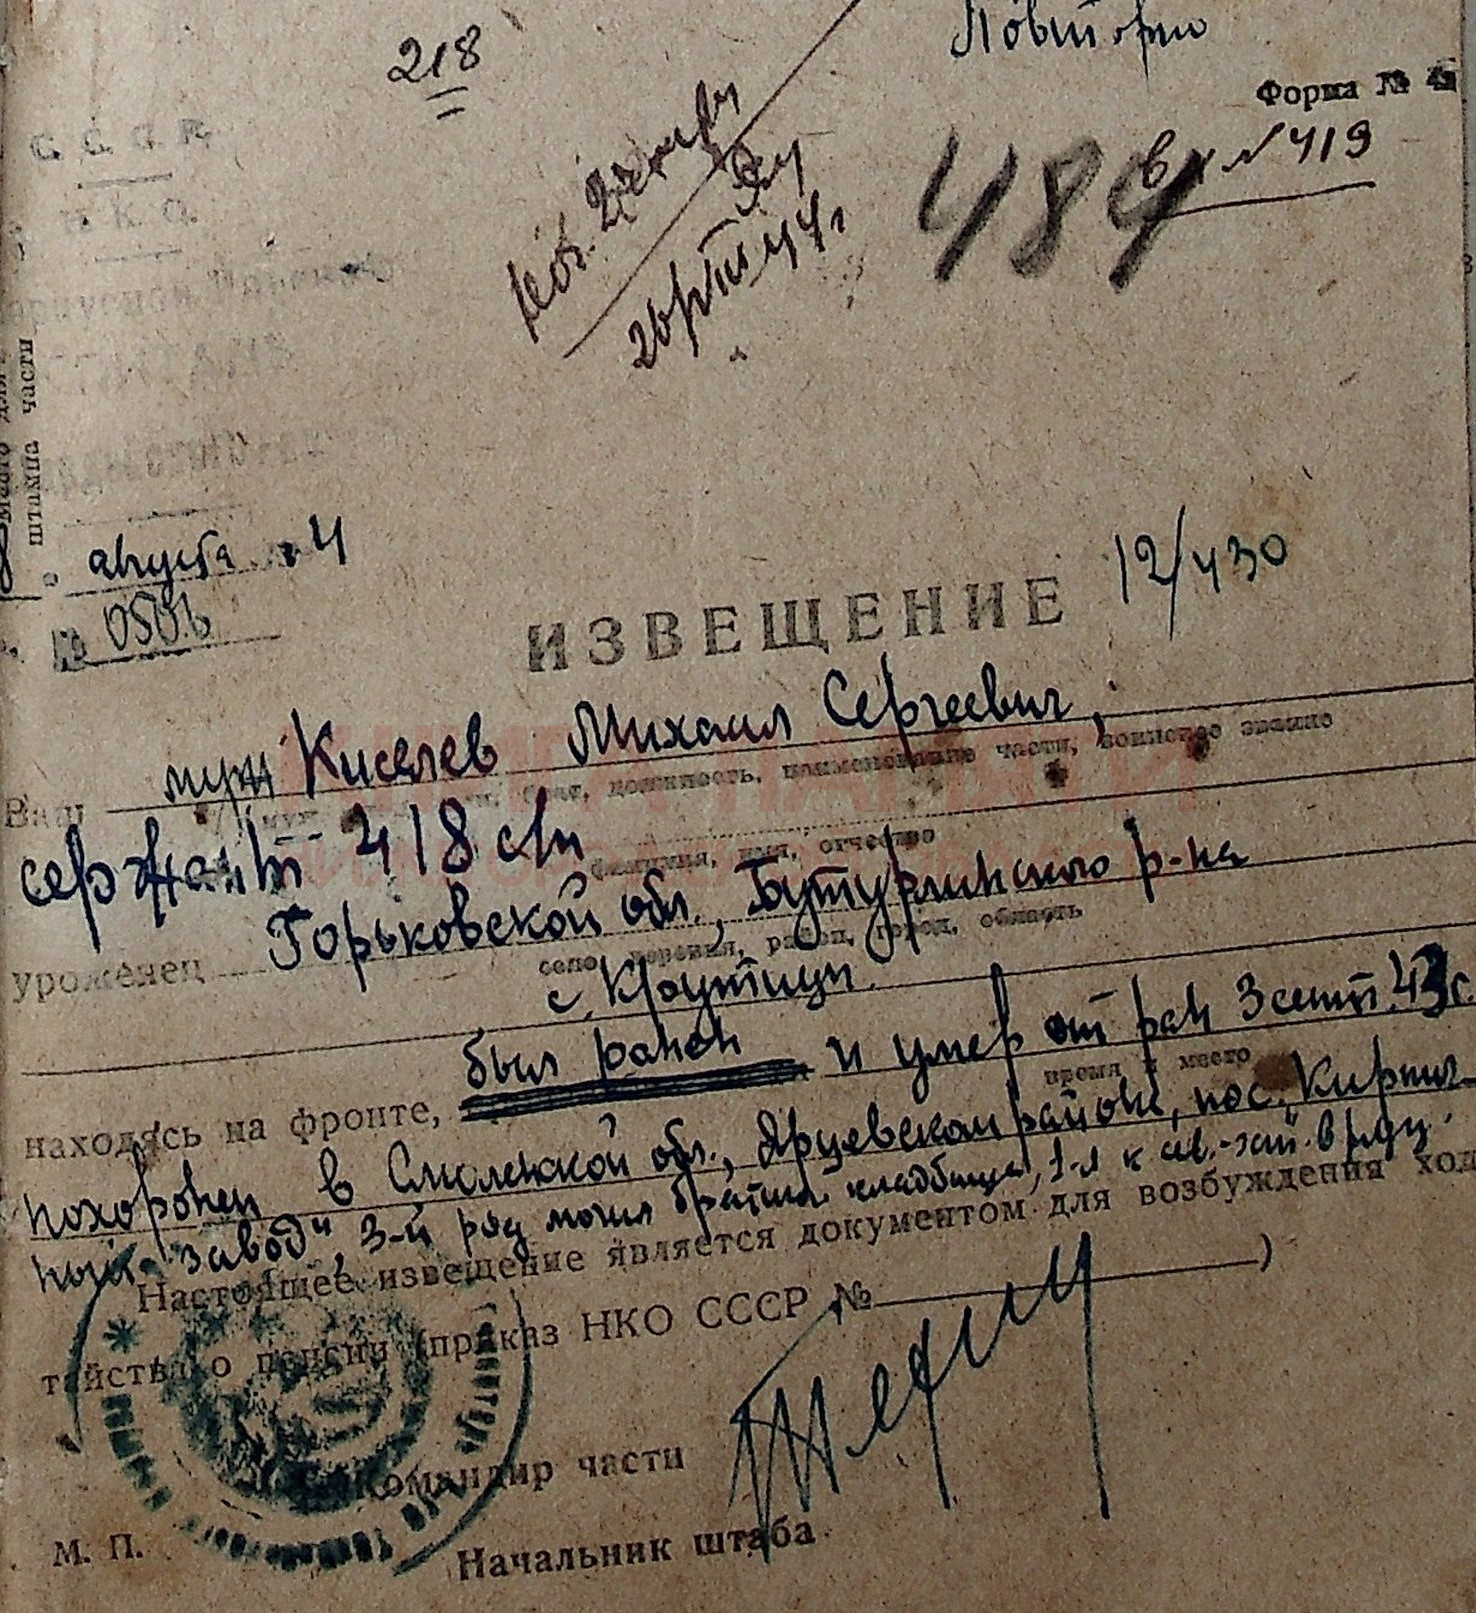 Повторно
218
Форма № 4
484
Вх №419
С. С. С. Р.
Н. К. О.
Место для
штампа части
августа 4
№ 0506
12/430
ИЗВЕЩЕНИЕ
Ваш муж Киселев Михаил Сергеевич,
муж, брат, должность, наименование части, воинское звание
сержант 418 сп
фамилия, имя, отчество
уроженец Горьковской обл., Бутурлинского р-на
село, деревня, район, город, область
с. Крутицы.
находясь на фронте, был ранен и умер от ран 3 сент. 43 г.
время и место
похоронен в Смоленской обл., Ярцевском районе, пос. „Кирпич-
ный завод", 3-й ряд могил братского кладбища, 1-я к сев.-зап. в ряду.
Настоящее извещение является документом для возбуждения хода-
тайства о пенсии (приказ НКО СССР № )
Командир части
М. П.
Начальник штаба